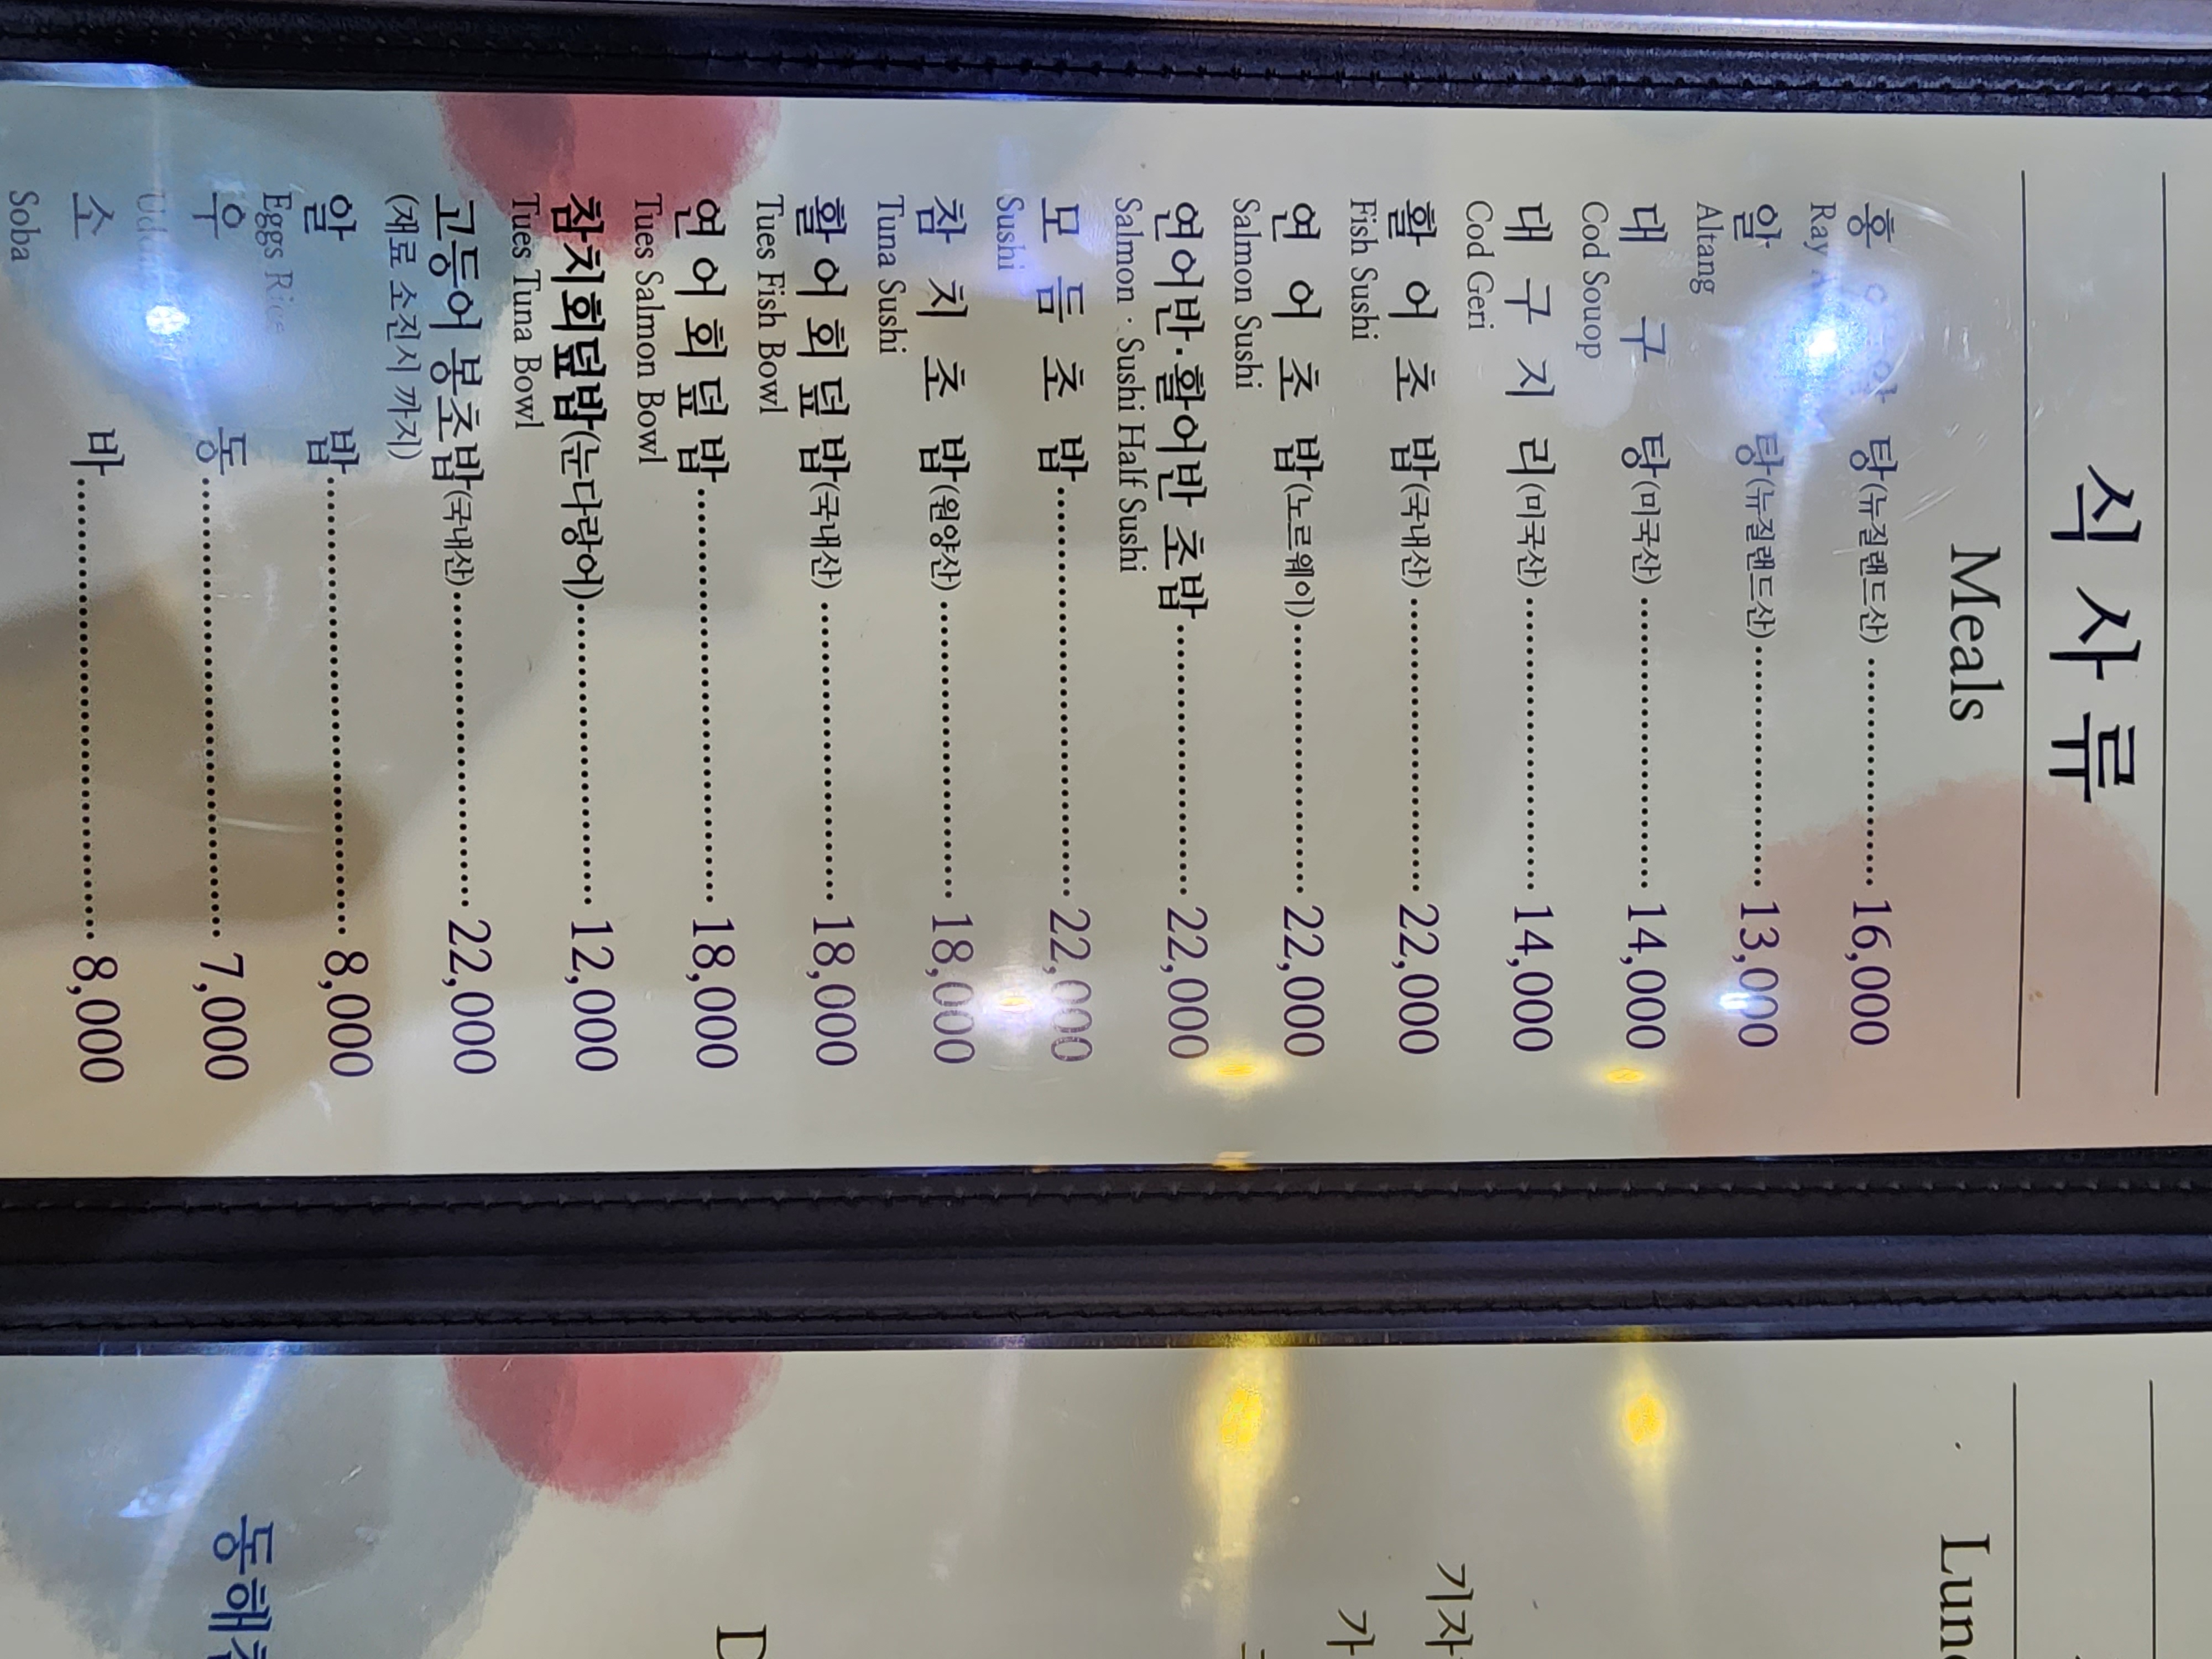 식사류
Meals
홍 어 알 탕(뉴질랜드산) 16,000
Ray
알 탕(뉴질랜드산) 13,000
Altang
대 구 탕(미국산) 14,000
Cod Souop
대 구 지 리(미국산) 14,000
Cod Geri
활 어 초 밥(국내산) 22,000
Fish Sushi
연 어 초 밥(노르웨이) 22,000
Salmon Sushi
연어반·활어반 초밥 22,000
Salmon · Sushi Half Sushi
모 듬 초 밥 22,000
Sushi
참 치 초 밥(원양산) 18,000
Tuna Sushi
활 어 회 덮 밥(국내산) 18,000
Tues Fish Bowl
연 어 회 덮 밥 18,000
Tues Salmon Bowl
참치회덮밥(눈다랑어) 12,000
Tues Tuna Bowl
고등어 봉초밥(국내산) 22,000
(재료 소진시 까지)
알 밥 8,000
Eggs Rice
우 동 7,000
소 바 8,000
Soba
기자
가
동해